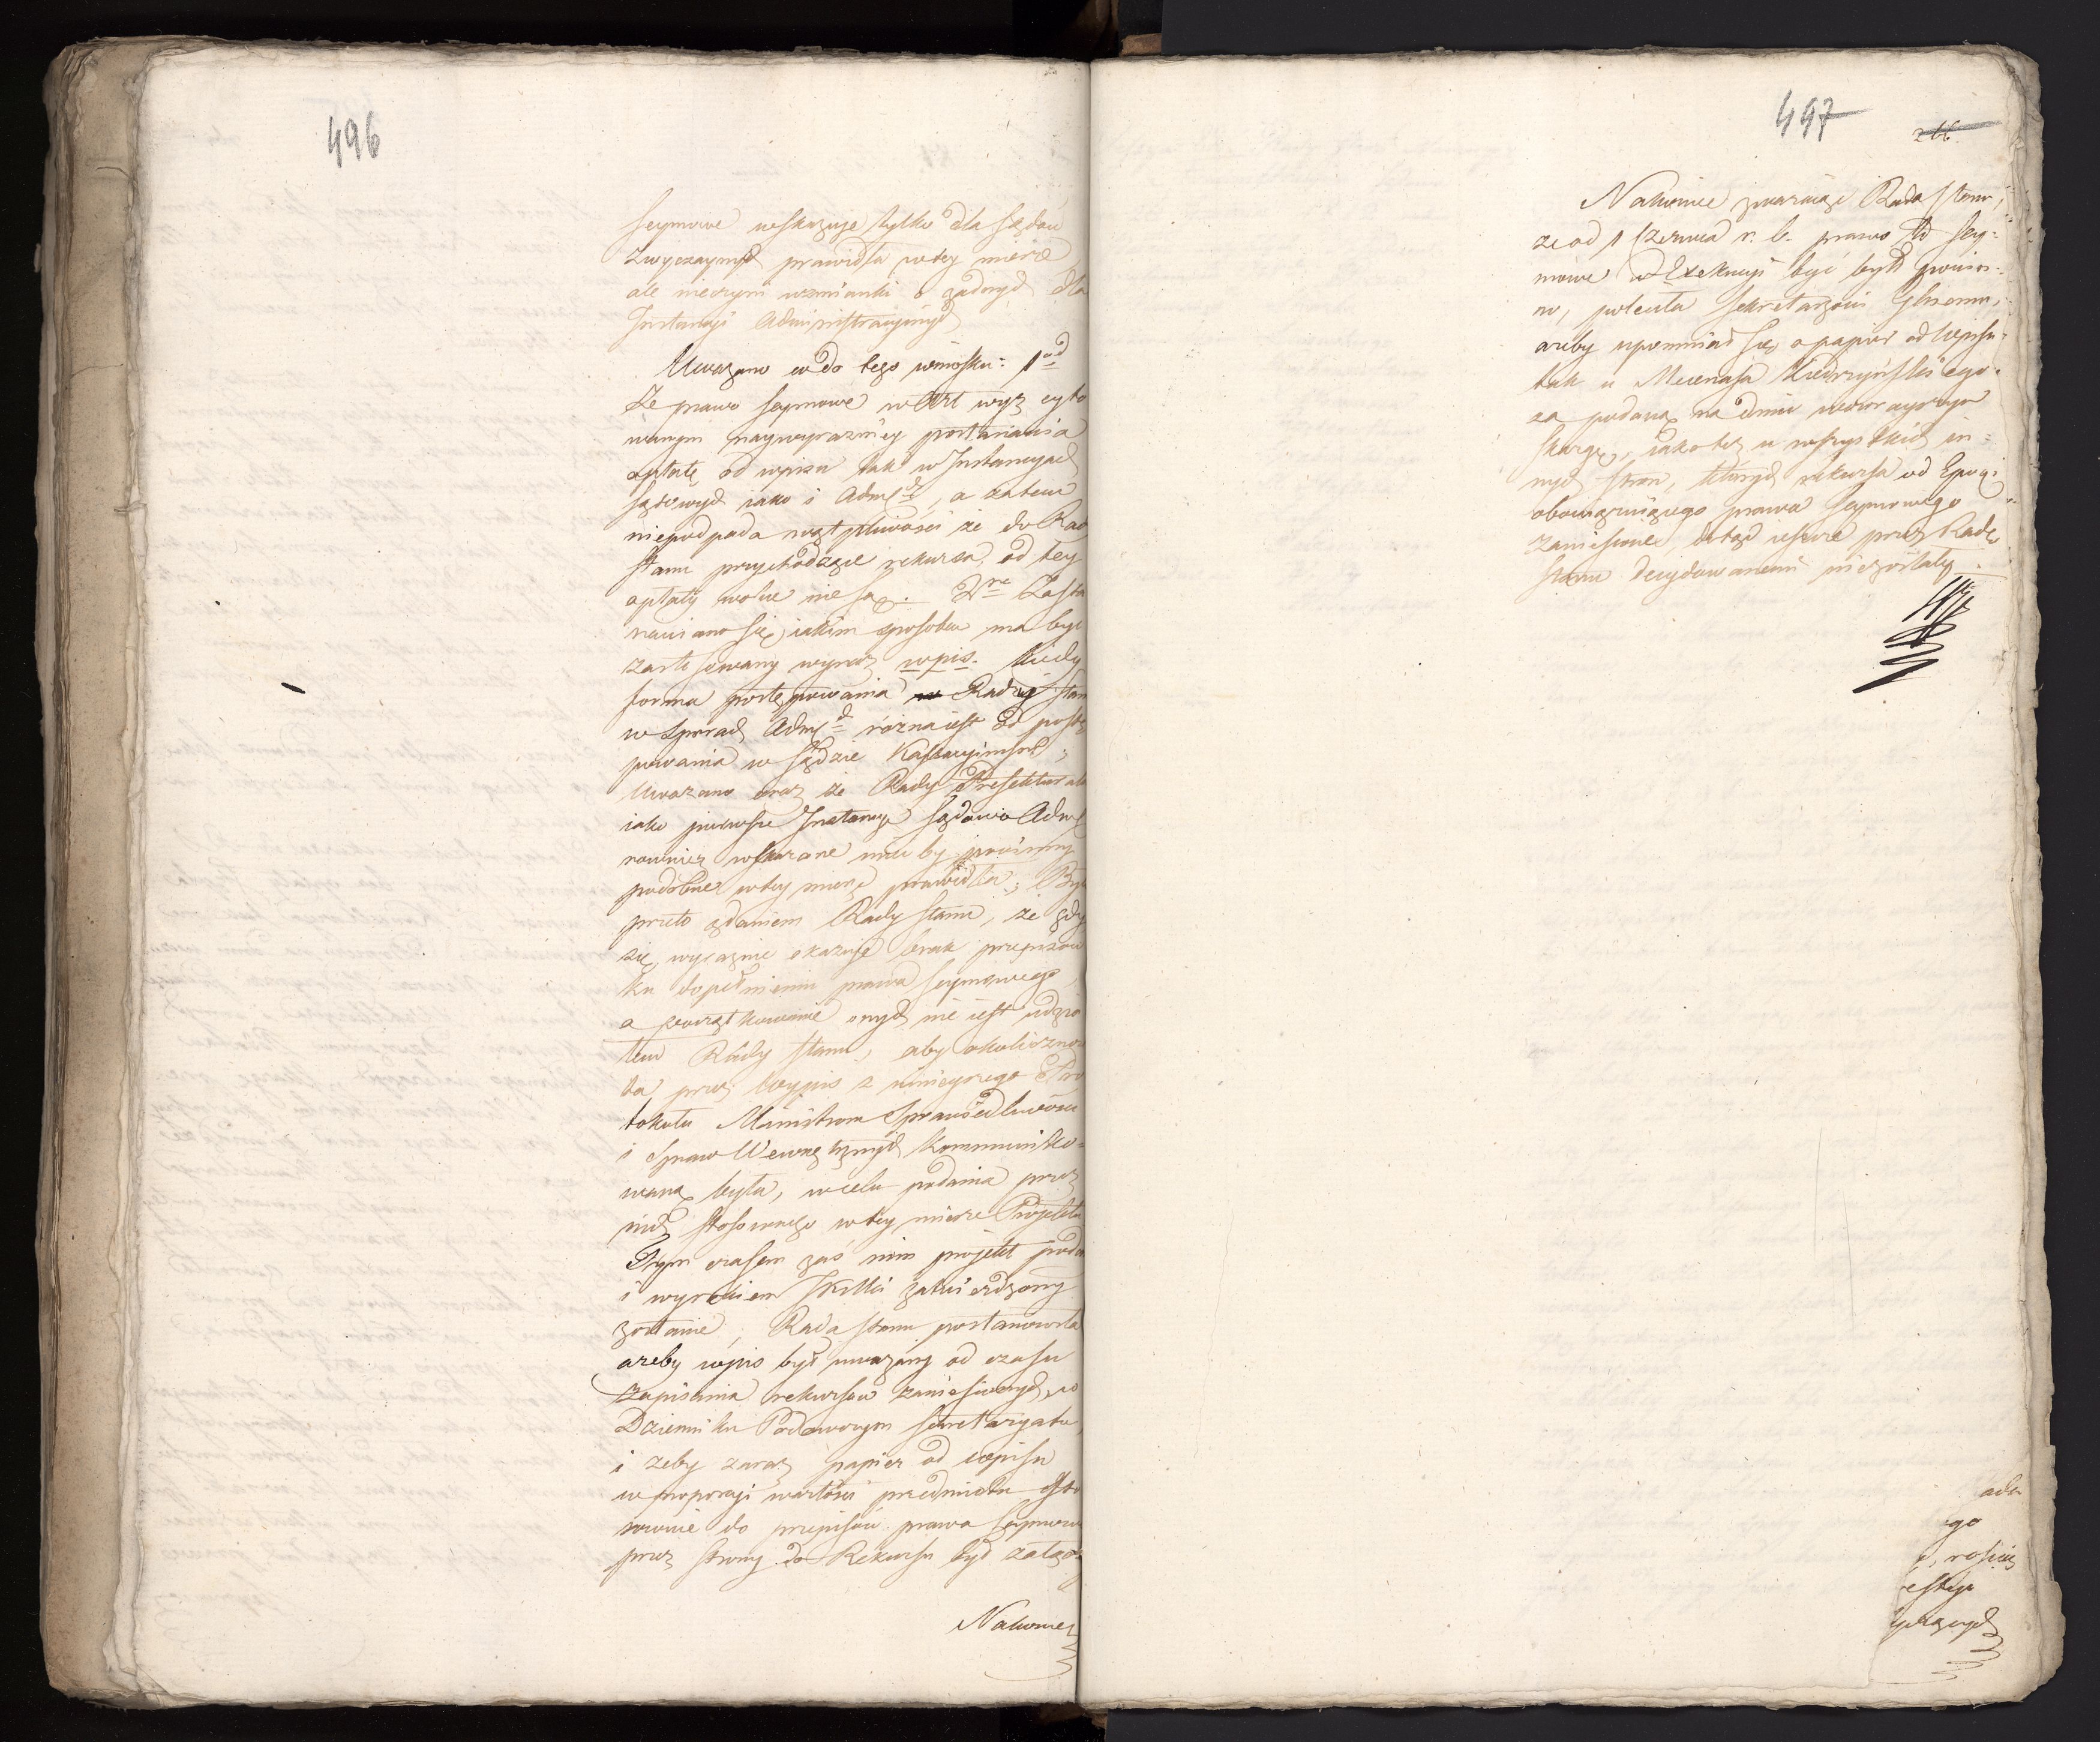 496
Seymowe wskazuie tylko dla Sądow
Zwyczaynych prawidła w tey mierze
ale nieczyni wzmianki o żadnych dla
Instancyi Administracyinych
Uważano co do tego wniosku: 1mo
Że prawo Seymowe w Art wyż cyto
wanym naywyrazniey postanawia
opłatę od wpisu tak w Instancyach
Sądowych iako i Adm, a zatem
niepodpada wątpliwości że do Rad
Stanu przychodzące rekursa, od tey
opłaty wolne nie są. 2re Zasta
nawiano się, iakim sposobem ma być
zastosowany wyraz wpis. kiedy
forma postępowania Rady Stan
w Sporach Adm różna iest od postę
powania w Sądzie Kassacyinym;
Uważano oraz że Rady Prefektural
iako pierwsze Instancye Sądowo Adm
rownież wskazane mieć by powinny
podobne w tey mierze prawidła; Był
przeto zdaniem Rady Stanu, że gdy
się wyraznie okazuie brak przepisow
ku dopełnieniu prawa Seymowego,
a początkowanie onych nie iest udzia
łem Rady Stanu, aby okoliczność
ta przez Wypis z ninieyszego Pro
tokułu Ministrom Sprawiedliwości
i Spraw Wewnętrznych kommuniko-
waną była, w celu podania przez
nich stosownego w tey mierze Projektu
Tym czasem zaś nim projekt poda
i wyrokiem JKMci zatwierdzony
zostanie, Rada Stanu postanowiła
ażeby wpis był uważany od czasu
Zapisania rekursow zaniesionych, w
Dzienniku Podawczym Sekretaryatu,
i żeby zaraz papier od wpisu
w proporcyi wartości przedmiotu Sto
sownie do przepisow prawa Seymow
przez Strony do Rekursu był załącz
Nakoniec

497
266.
Nakoniec zważaiąc Rada Stanu,
że od 1 Czerwca r. b. prawo to Sey-
mowe w Exekucyi być było powin-
no, poleciła Sekretarzowi Głnemu,
ażeby upomniał się o papier od Wpisu
tak u Mecenasa Kiedrzyńskiego
za podaną na dniu wczorayszym
skargę, iako też u wszystkich in-
nych Stron, ktorych rekursa od Epoki
obowiązuiącego prawa Seymowego
zaniesione, dotąd ieszcze przez Radę
Stanu decydowanemi niezostały.
ada
go